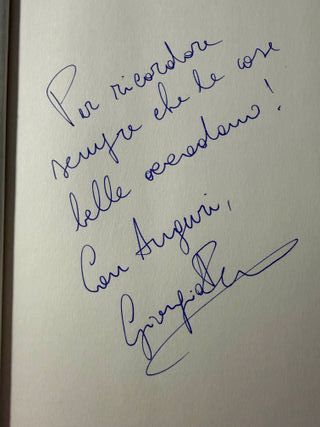 Per ricordare
sempre che le cose
belle accadono!
Con Auguri,
Giorgia